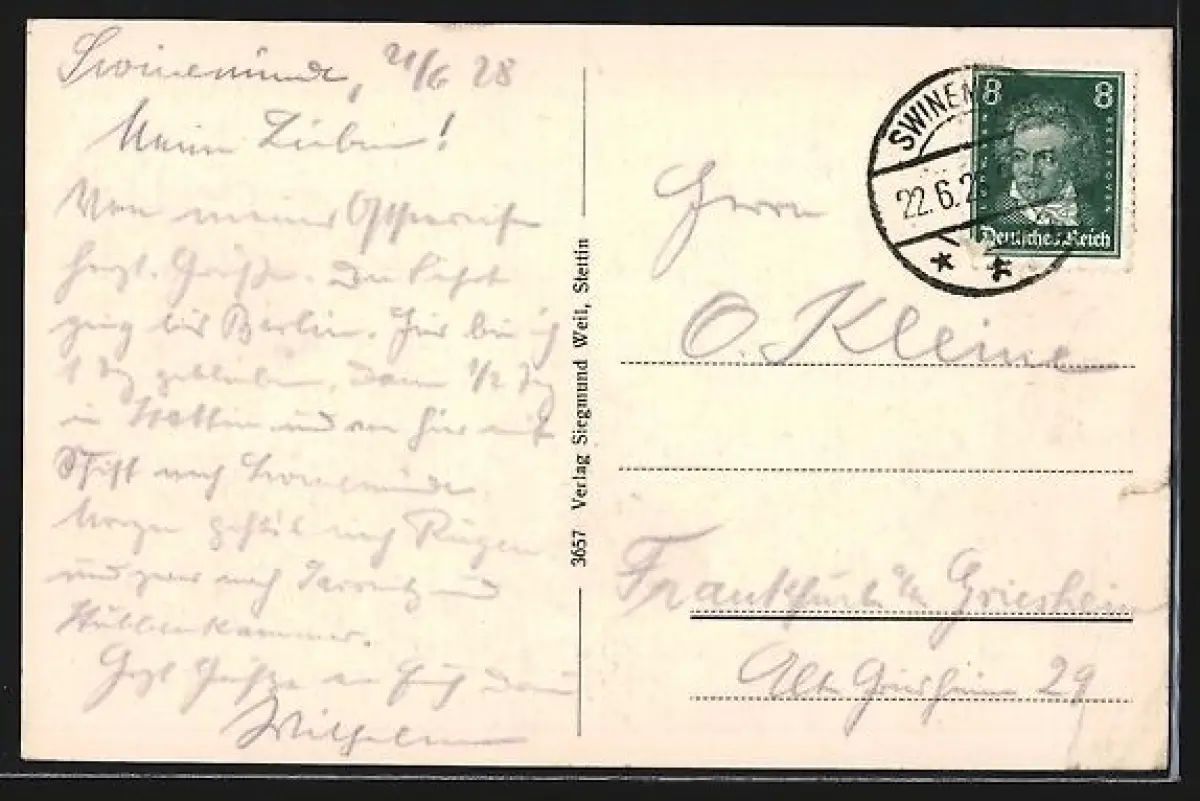 Swinemünde, 21/6 28
Meine Lieben!
Von meiner Ostseereise
herzl. Grüße. Die Fahrt
ging bis Berlin. Hier bin ich
1 Tg geblieben, dann 1/2 Tg
in Stettin und von hier mit
Schiff nach Swinemünde.
Morgen geht's nach Rügen
und zwar nach Sassnitz und
Stubbenkammer.
Herzl Grüße an Euch
Wilhelm
3657 Verlag Siegmund Weil, Stettin
SWINEM
22.6.2
8 8
Deutsches Reich
Herrn
O. Kleine
Frankfurt a/m Griesheim
Alt Griesheim 29